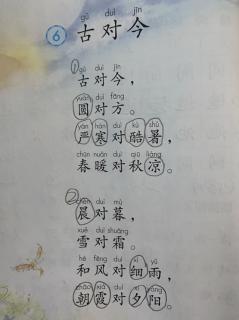 gǔ duì jīn
6 古对今
1
gǔ duì jīn
古对今，
yuán duì fāng
圆对方。
yán hán duì kù shǔ
严寒对酷暑，
chūn nuǎn duì qiū liáng
春暖对秋凉。
2
chén duì mù
晨对暮，
xuě duì shuāng
雪对霜。
hé fēng duì xì yǔ
和风对细雨，
zhāo xiá duì xī yáng
朝霞对夕阳。